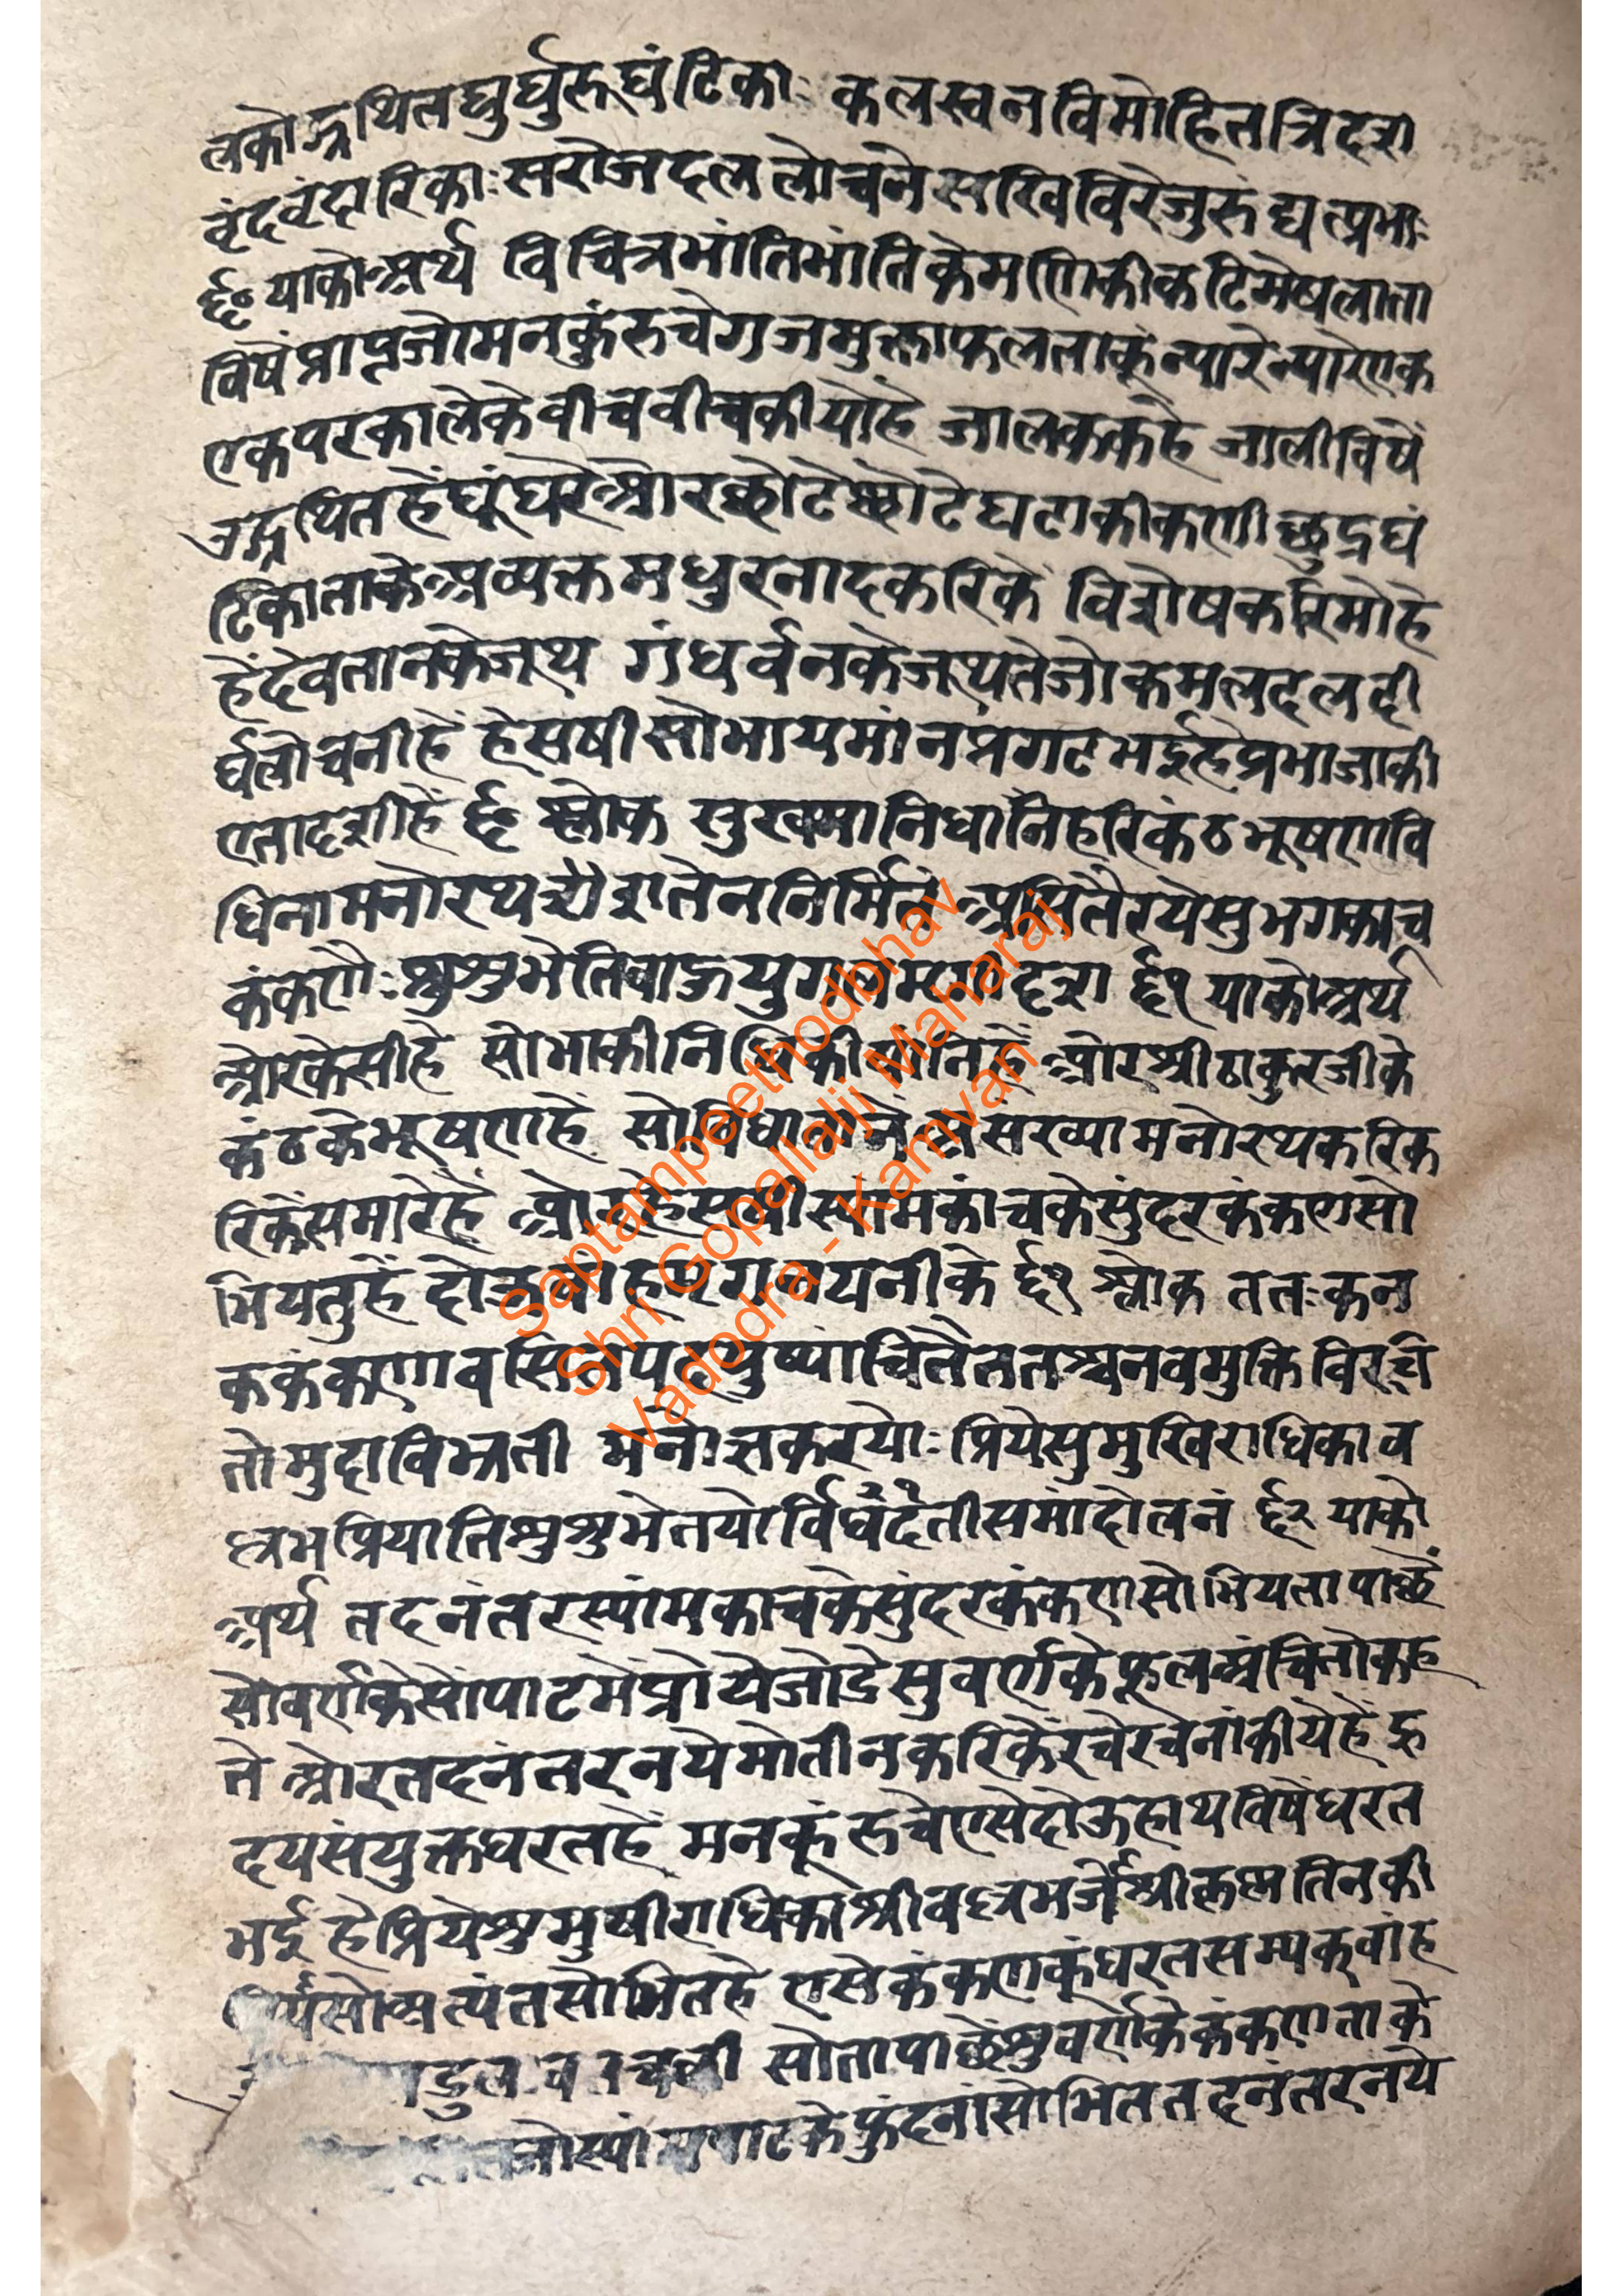 लकोद्ग्रथितघुर्घुरूघंटिकाः कलस्वनविमोहितत्रिदश
वृंदवृंदारिकाः सरोजदललोचने सखि विरेजुरुद्यत्प्रभाः
६० याको अर्थ विचित्रभांतिभांतिकेमणिकीकटिमेषलाता
विषें प्राप्तजोमनकुंरुचेगजमुक्ताफलताकूंन्यारेन्यारेएक
एकपरकालेकेवीचवीचकीयोहै जालककहै जालीविषें
उद्ग्रथितहेंघूंघरेओरछोटेछोटेघटाकीकणीछुद्रघं
टिकाताकेअव्यक्तमधुरनादकरिकें विशेषकरिमोहे
हेंदेवतानकेजूथ गंधर्वनकेजूथतेजोकमलदलदी
र्घलोचनीहें हेसषीसोभायमांनप्रगटभईहेप्रभाजाकी
एतादृशीहें ६० श्लोक सुखमानिधानिहरिकंठभूषणवि
धिनामनोरथशतेननिर्मिते असितैरयेसुभगकाच
कंकणैः शुशुभेतिबाहुयुगलंमृगीदृश ६१ याकोअर्थ
ओरकेसीहे सोभाकीनिधिकीषांनिहें ओरश्रीठाकुरजीके
कंठकेभूषणहें सोविधातानेंअसंख्यामनोरथकरिक
रिकेंसमारेहें ओरहेसषीस्यांमकांचकेसुंदरकंकणसो
भियतुहें दोऊबाहमृगनयनीके ६१ श्लोक ततःकन
ककंकणावसितपट्टपुष्पांचितैततश्चनवमुक्तिविरचि
तोमुदाविभ्रती मनोज्ञकरयोः प्रियेसुमुखिराधिकाव
ल्लभप्रियातिशुशुभेतयोर्विधंदतीसमांदोलनं ६२ याको
अर्थ तदनंतरस्यांमकाचकेसुंदरकंकणसोभियतापाछें
सोवर्णकेसोंपाटमेंप्रोयेजोद्रेसुवर्णकेफूलअंचितोकह
ते ओरतदनंतरनयेमोतीनकरिकेंरचेरचेनांकीयेहें हृ
दयसंयुक्तधरतहें मनकूंरुचेएसेदोऊहाथविषेंधरत
भई हैप्रियेशुमुषीराधिकाश्रीवल्लभजेश्रीकृष्मतिनकी
प्रियासोअत्यंतसोभितहे एसेकंकणकूंधरतसम्यकवांह
सोतापाछेंशुवर्णकेकंकणताके
जोस्यांमपाटकेफुंदनांसोभिततदनंतरनये
Saptampeethodbhav
Shri Gopallalji Maharaj
Vadodra - Kamvan